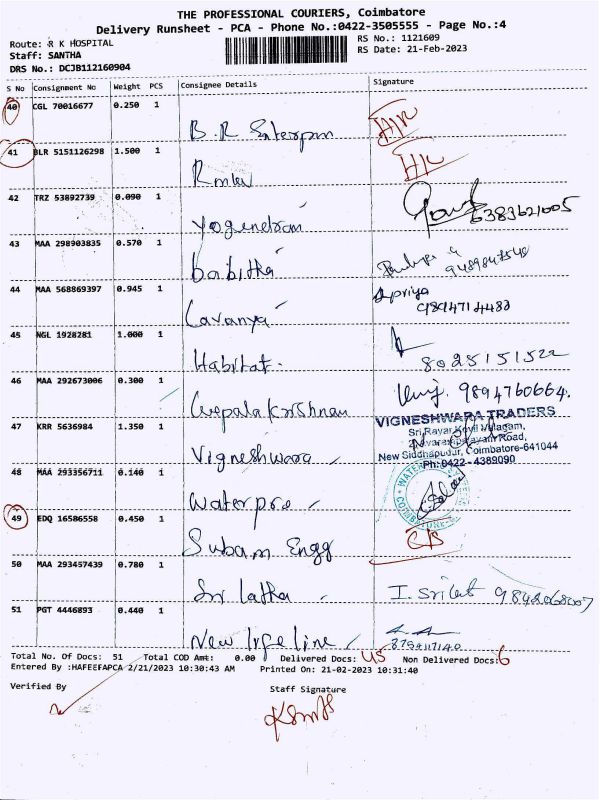 THE PROFESSIONAL COURIERS, Coimbatore
Delivery Runsheet - PCA - Phone No.:0422-3505555 - Page No.:4
Route: R K HOSPITAL
RS No.: 1121609
Staff: SANTHA
RS Date: 21-Feb-2023
DRS No.: DCJB112160904
S No Consignment No Weight PCS Consignee Details Signature
40 CGL 70016677 0.250 1
B.R
41 BLR 5151126298 1.500 1
42 TRZ 53892739 0.090 1
6383621005
Yogendran
43 MAA 298903835 0.570 1
babitha
44 MAA 568869397 0.945 1
priya
Lavanya
45 NGL 1928281 1.000 1
Habitat.
8025151522
46 MAA 292673006 0.300 1
9894760664.
Gopala Krishnan
47 KRR 5636984 1.350 1
VIGNESHWARA TRADERS
Sri Rayar Kovil Valagam,
Road,
New Siddhapudur, Coimbatore-641044
Ph:0422 - 4389090
Vigneshwara
48 MAA 293356711 0.140 1
Water pro
49 EDQ 16586558 0.450 1
Subam Engg
50 MAA 293457439 0.780 1
Sri latha
I. Srilat
51 PGT 4446893 0.440 1
New life line
Total No. Of Docs: 51 Total COD Amt: 0.00 Delivered Docs: 45 Non Delivered Docs: 6
Entered By :HAFEEFAPCA 2/21/2023 10:30:43 AM Printed On: 21-02-2023 10:31:40
Verified By
Staff Signature